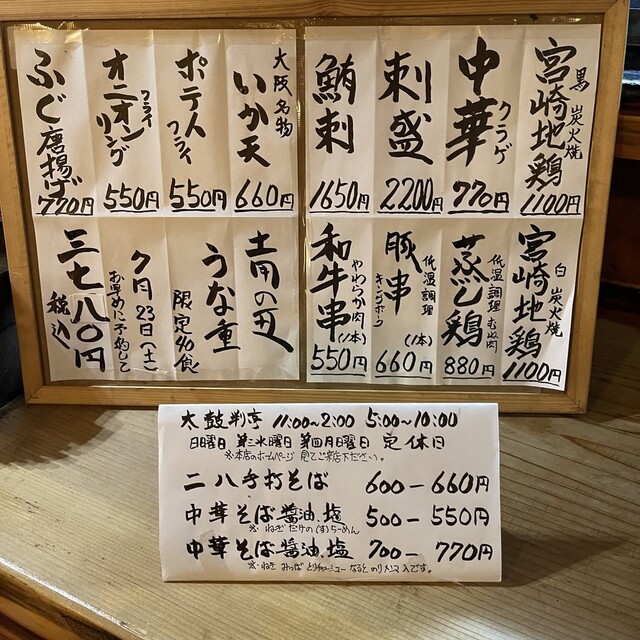 黒 炭火焼
宮崎地鶏
1100円
中華クラゲ
770円
刺盛
2200円
鮪刺
1650円
大阪名物
いか天
660円
ポテト
フライ
550円
オニオン
フライ
リング
550円
ふぐ唐揚げ
770円
白 炭火焼
宮崎地鶏
1100円
低温調理 むね肉
蒸し鶏
880円
低温調理
豚串
(1本)
660円
和牛串
やわらか肉(1本)
550円
土用の丑
うな重
限定40食
7月23日(土)
お早めに予約して
三七八〇円
税込
太鼓判亭 11:00~2:00 5:00~10:00
日曜日 第三水曜日 第四月曜日 定休日
※本店のホームページ 見てご来店下さい。
二八手打そば 600- 660円
中華そば 醤油.塩 500- 550円
※ねぎだけの(す)らーめん
中華そば-醤油.塩 700- 770円